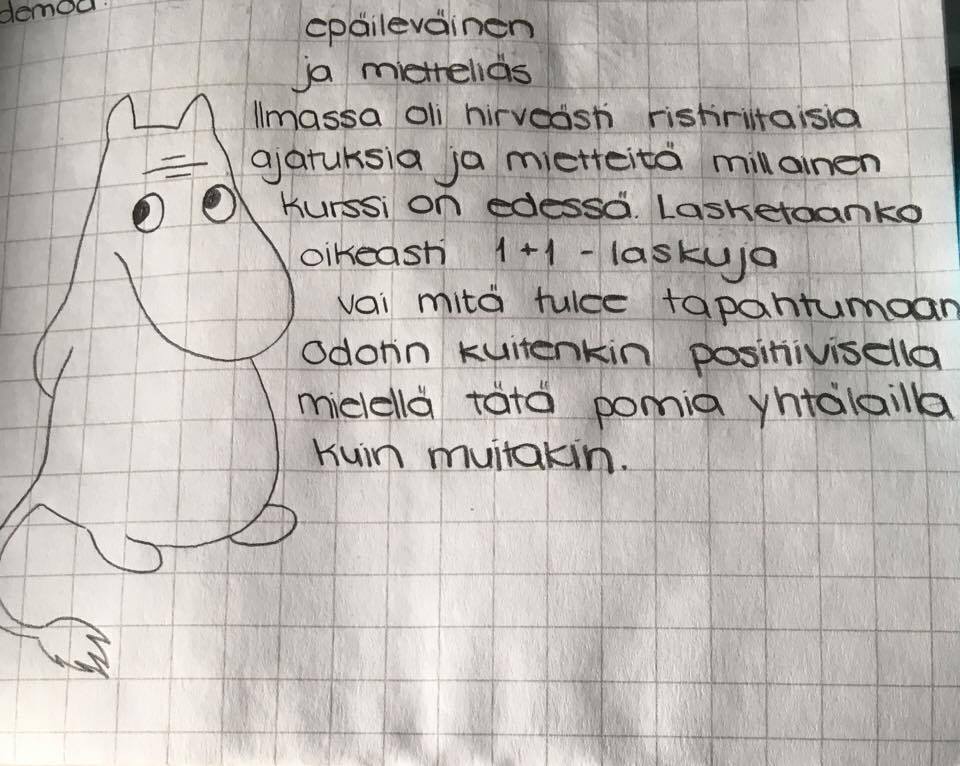 demoa.
epäileväinen
ja mietteliäs
Ilmassa oli hirveästi ristiriitaisia
ajatuksia ja mietteitä millainen
kurssi on edessä. Lasketaanko
oikeasti 1+1 - laskuja
vai mitä tulee tapahtumaan
Odotin kuitenkin positiivisella
mielellä tätä pomia yhtälailla
kuin muitakin.